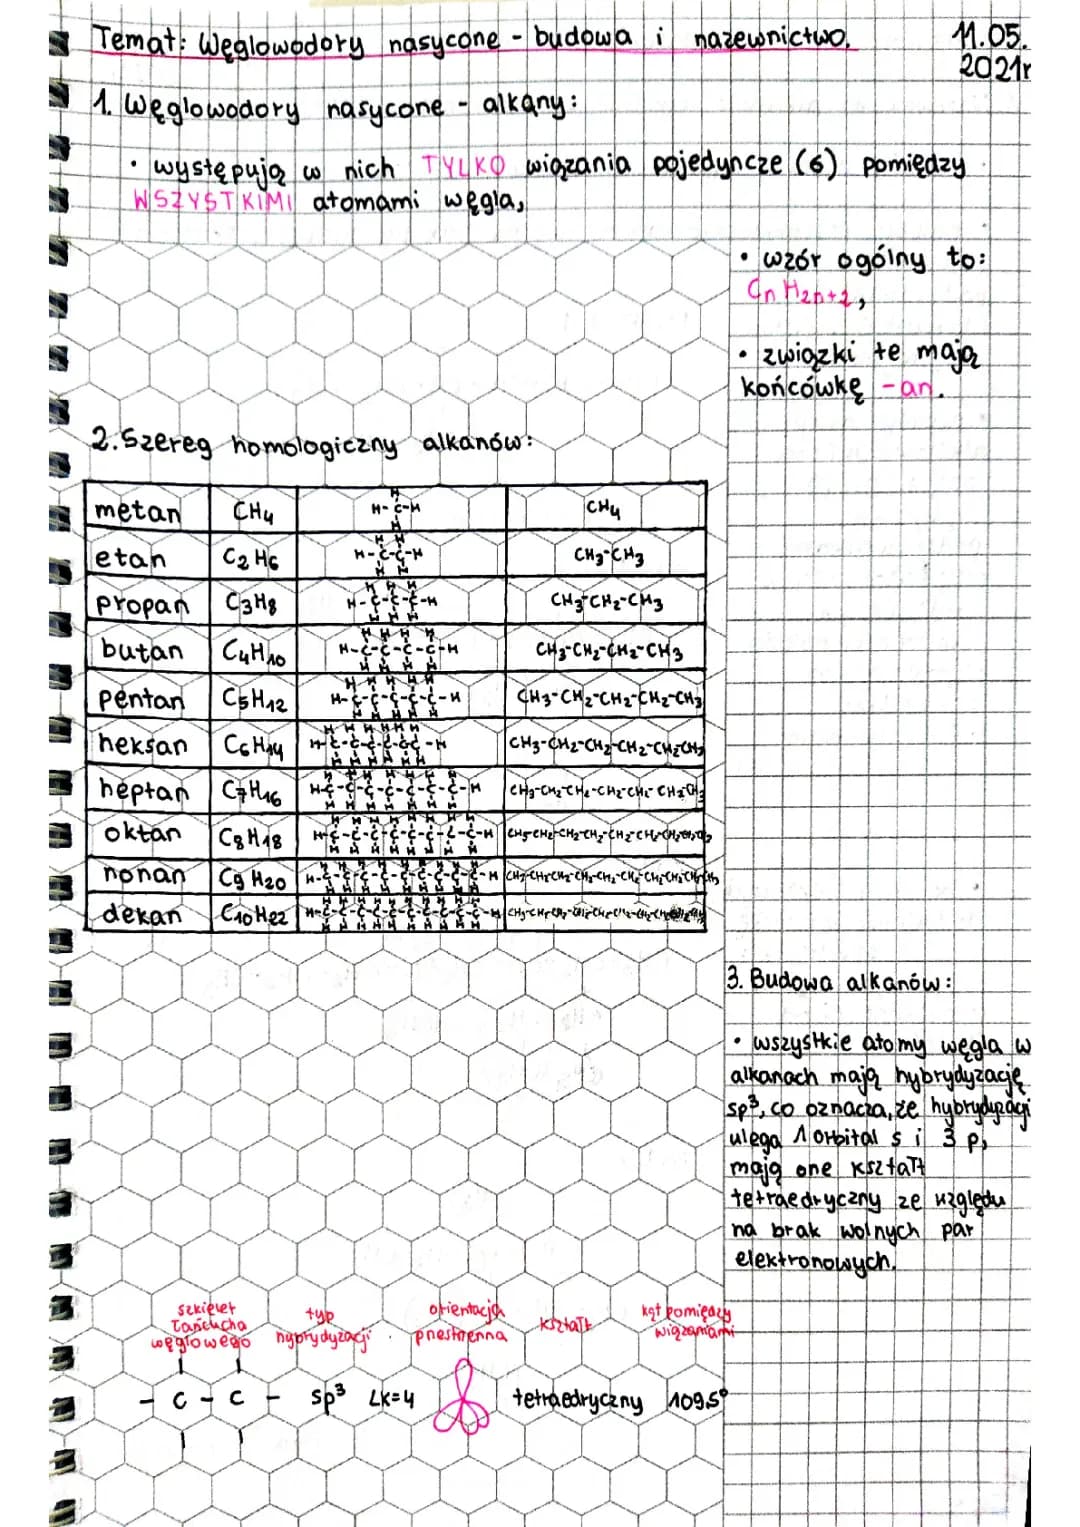 Temat: Węglowodory nasycone - budowa i nazewnictwo. 11.05.
2021r
1. Węglowodory nasycone - alkany:
• występują w nich TYLKO wiązania pojedyncze (6) pomiędzy
WSZYSTKIMI atomami węgla,
• wzór ogólny to:
CnH2n+2,
• związki te mają
końcówkę -an.
2. Szereg homologiczny alkanów:
metan CH4 CH4
etan C2H6 CH3-CH3
propan C3H8 CH3-CH2-CH3
butan C4H10 CH3-CH2-CH2-CH3
pentan C5H12 CH3-CH2-CH2-CH2-CH3
heksan C6H14 CH3-CH2-CH2-CH2-CH2CH3
heptan C7H16
oktan C8H18
nonan C9H20
dekan C10H22
3. Budowa alkanów:
• wszystkie atomy węgla w
alkanach mają hybrydyzację
sp3, co oznacza, że hybrydyzacji
ulega 1 orbital s i 3 p,
mają one kształt
tetraedryczny ze względu
na brak wolnych par
elektronowych.
szkielet łańcucha węglowego
typ hybrydyzacji
orientacja przestrzenna
kształt
kąt pomiędzy wiązaniami
- C - C - sp3 LK=4 tetraedryczny 109,5°